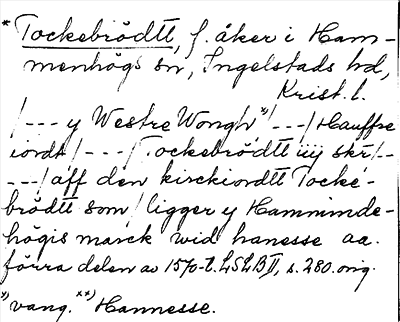 * Tockebrödtt, f. åker i Ham-
menhögs sn, Ingelstads hd,
Krist. l.
/--- y Westre Wongh,*) /---/ Hauffre
iordt /---/ Tockebrödtt iiij skr/--
--/ aff den kirckiordtt Tocke-
brödtt som / ligger y Hammimde-
högis marck wid hanesse aa.
förra delen av 1570-t. LSLB II, s. 280. orig.
*) vang. **) Hannesse.